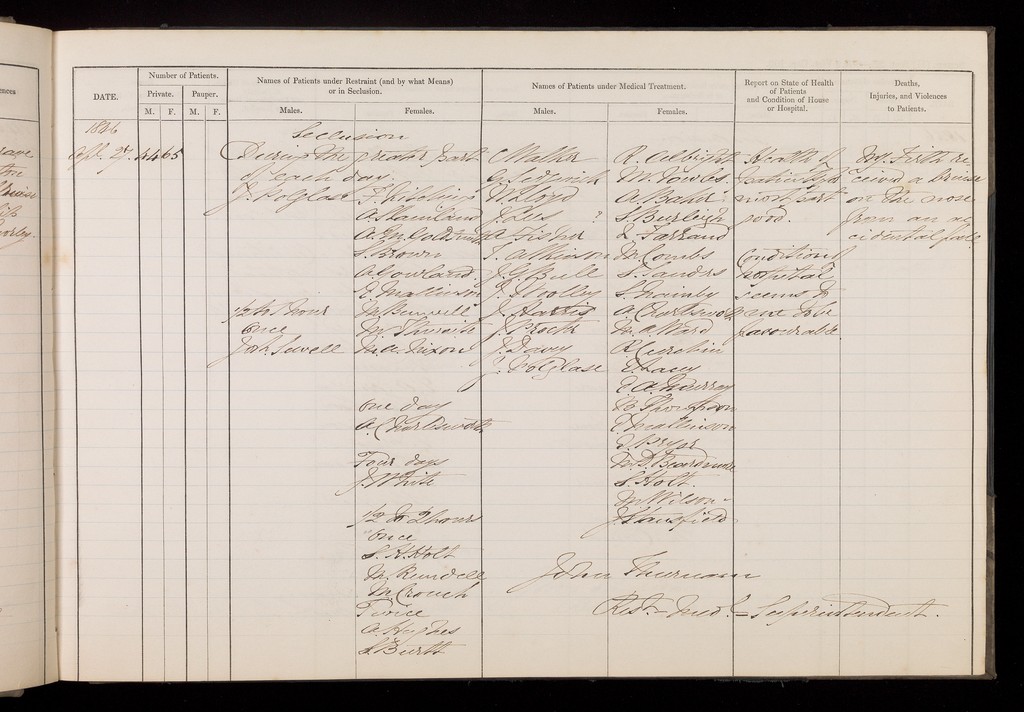 DATE.
Number of Patients.
Private.
Pauper.
M.
F.
M.
F.
Names of Patients under Restraint (and by what Means)
or in Seclusion.
Males.
Females.
Names of Patients under Medical Treatment.
Males.
Females.
Report on State of Health
of Patients
and Condition of House
or Hospital.
Deaths,
Injuries, and Violences
to Patients.
1846
27
44
65
Seclusion
During the greater part
of each day.
J. Polglase
A. Staniland
S. Brown
A. Gowland.
E. Mallinson
1/2 hour
once
Sewell
M. Thwaite
M. A. Nixon
one day
A. Charlesworth
Four days
J. White
1/2 to 2 hours
once
S. H. Holt
M. Rundell
M. Crouch
Twice
A. Hughes
S. Burtt
C Mather
W. Lloyd
J. Lees ?
A Fisher
T. Atkinson
J. G. Bull
J. Woolley
J. Harris
J. Procter
J. Davy
J. Polglase
R. Allbright
M. Fowles
S. Burleigh
Farrand
M. Combs
S. Sanders
A. Charlesworth
M. A. Ward
E. Lacy
E. A. Murray
Thompson
E Mallinson
Pryor
M. D. Beardmore
S. Holt.
M. Wilson
J. Stansfield
Health of
patients for
most part
good.
Condition of
hospital
seems to
me to be
favourable.
Firth re
ceived a bruise
on the nose
from an ac
cidental fall.
John Thurnam
Resdt. Medl. Superintendent.